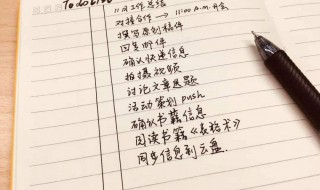 To do List
11月工作总结
对接合作 → 11:00 a.m.开会
撰写原创稿件
回复邮件
确认快递信息
拍摄视频
讨论文章选题
活动策划 push
确认书籍信息
阅读书籍《表达术》
同步信息到云盘